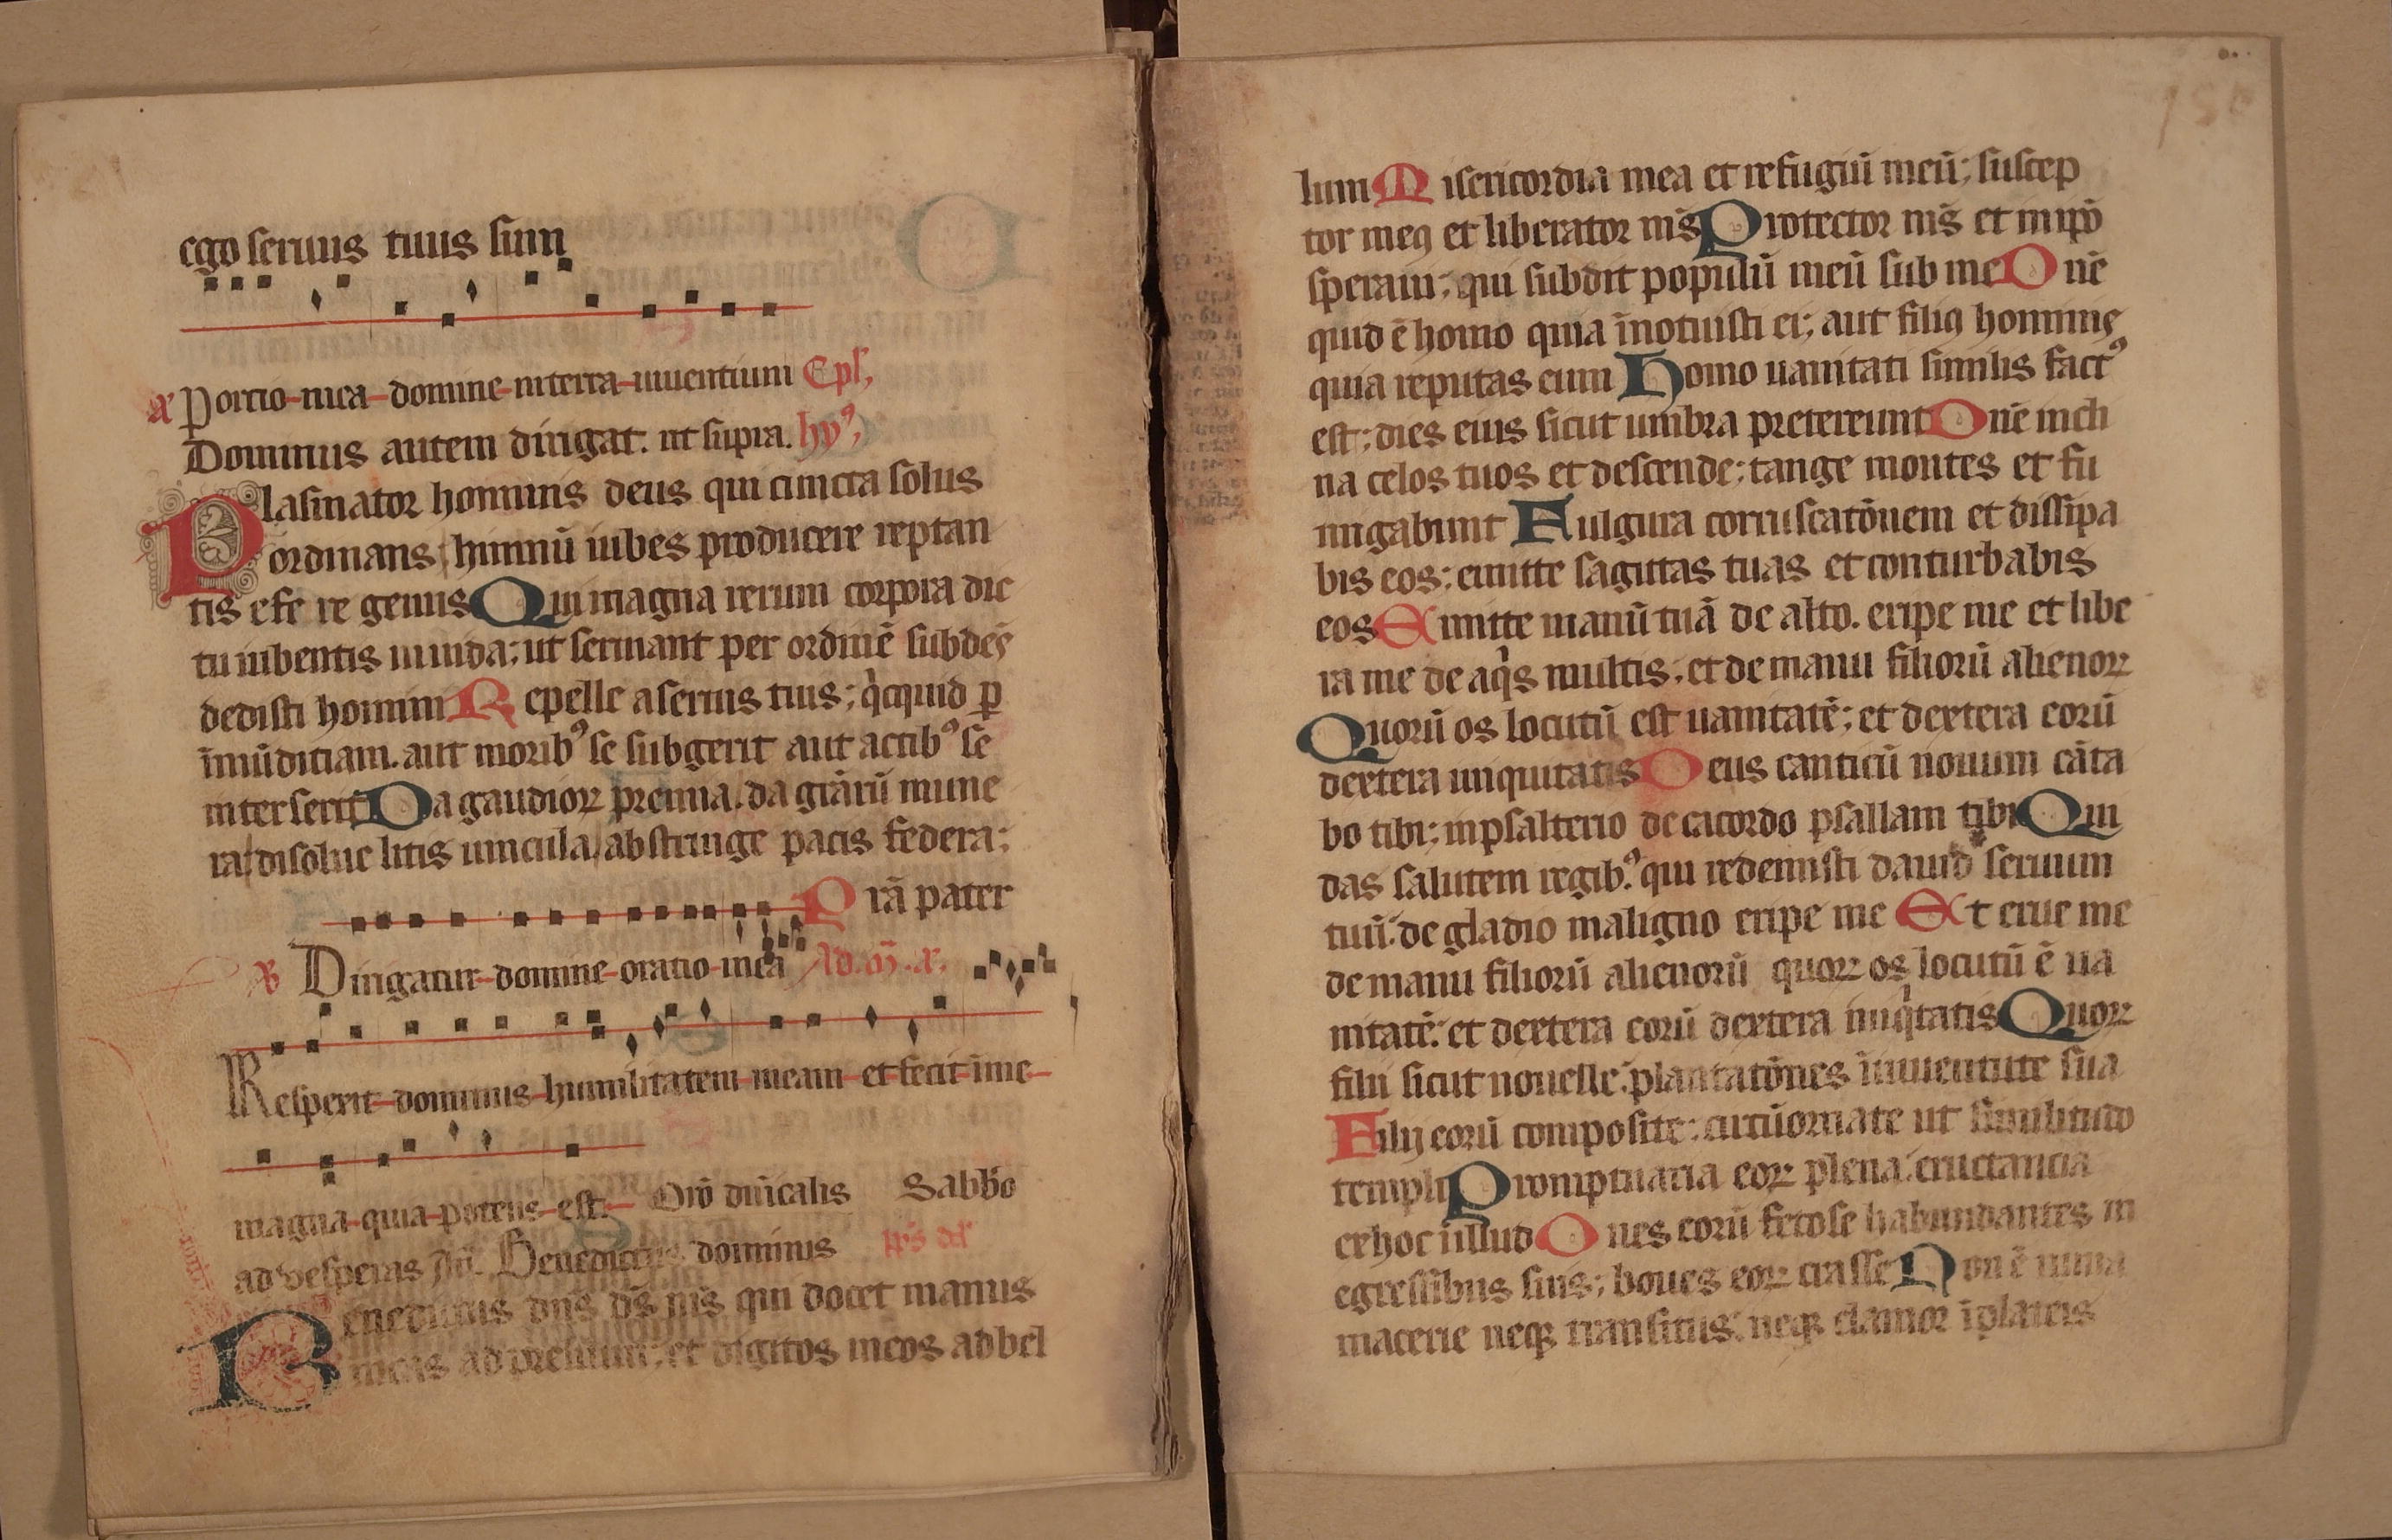 ego seruus tuus sum
a Portio mea domine in terra uiuentium Epł,
Dominus autem dirigat. ut supra. hy⁹,
Plasmator hominis deus qui cuncta solus
ordinans humū iubes producere reptan
tis efe re genus Qui magna rerum corpora dic
tu iubentis uiuida; ut seruiant per ordinē subdēs
dedisti homini Repelle a seruis tuis; qͥcquid ꝑ
īmūditiam. aut morib⁹ se subgerit aut actib⁹ se
interserit Da gaudioꝝ premia. da grārū mune
ra dissolue litis uincula abstringe pacis federa;
Prā pater
℣ Dirigatur domine oratio mea Ad .m̄. a.
Respexit dominus humilitatem meam et fecit ī me
magna quia potens est. Orō dn̄icalis Sabb̄o
ad vesperas Añ. Benedictus dominus p̄s dd̄
Benedictus dn̄s ds̄ ms̄ qui docet manus
meas ad prelium; et digitos meos ad bel
lum Misericordia mea et refugiū meū; suscep
tor meꝯ et liberator ms̄ Protector ms̄ et in ip̄o
speraui; qui subdit populū meū sub me Dnē
quid ē homo quia īnotuisti ei; aut filiꝯ hominis
quia reputas eum Homo uanitati similis fact⁹
est; dies eius sicut umbra pretereunt Dnē incli
na celos tuos et descende; tange montes et fu
migabunt Fulgura corruscatōnem et dissipa
bis eos; emitte sagittas tuas et conturbabis
eos Emitte manū tuā de alto. eripe me et libe
ra me de aqͥs multis; et de manu filiorū alienoꝝ
Quorū os locutū est uanitatē; et dextera eorū
dextera iniquitatis Deus canticū nouum cāta
bo tibi; in psalterio decacordo psallam tibi Qui
das salutem regib⁹. qui redemisti dauid seruum
tuū. de gladio maligno eripe me Et erue me
de manu filiorū alienorū quoꝝ os locutū ē ua
nitatē. et dextera eorū dextera iniqͥtatis Quoꝝ
filii sicut nouelle; plantatōnes ī iuuentute sua
Filij eorū composite; circūornate ut similitudo
templi Promptuaria eoꝝ plena. eructancia
ex hoc ī illud Ones eorū fetose habundantes in
egressibus suis; boues eoꝝ crasse Non ē ruina
macerie neqꝫ transitus; neqꝫ clamor ī plateis